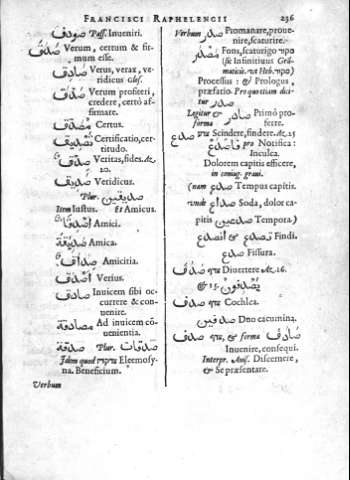 FRANCISCI RAPHELENGII 236
صودف Pass. Inueniri.
صدق Verum, certum & firmum esse.
صادق Verus, verax, veridicus Glos.
صدق Verum profiteri, credere, certò affirmare.
مصدق Certus.
تصديق Certificatio, certitudo.
صدق Veritas, fides. Az. 20.
صديق Veridicus.
Plur. صديقين
Item Iustus. Et Amicus.
اصدقا Amici.
صديقة Amica.
صداقة Amicitia.
اصدق Verius.
صادف Inuicem sibi occurrere & conuenire.
مصادفة Ad inuicem côuenientia.
صدقة Plur. صدقات
Idem quod Eleemosyna. Beneficium.
Verbum
Verbum صدر Promanare, prouenire, scaturire.
مصدر Fons, scaturigo
(sic Infinitiuus Grāmaticis. vt Heb.
Processus: & Prologus, præfatio. Pro quo etiam dicitur صدر
Legitur & forma صادر Primò proferre.
صدع Scindere, findere. Az. 15
فاصدع pro Notifica: Inculca.
Dolorem capitis efficere, in coniug. graui.
(nam صدع Tempus capitis.
vnde صداع Soda, dolor capitis صدعين Tempora.)
تصدع & انصدع Findi.
صدع Fissura.
صدف Diuertere Az. 16.
يصدفون & 15.
صدف Cochlea.
صدفين Duo cacumina.
صدف & forma صادف
Inuenire, consequi.
Interpr. Discernere, & Se præsentare.